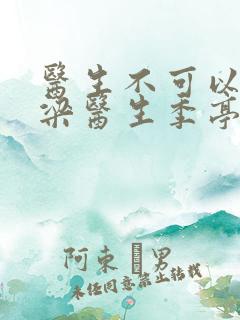 醫生不可以
梁醫生季亭
阿束 男
未经同意禁止转载